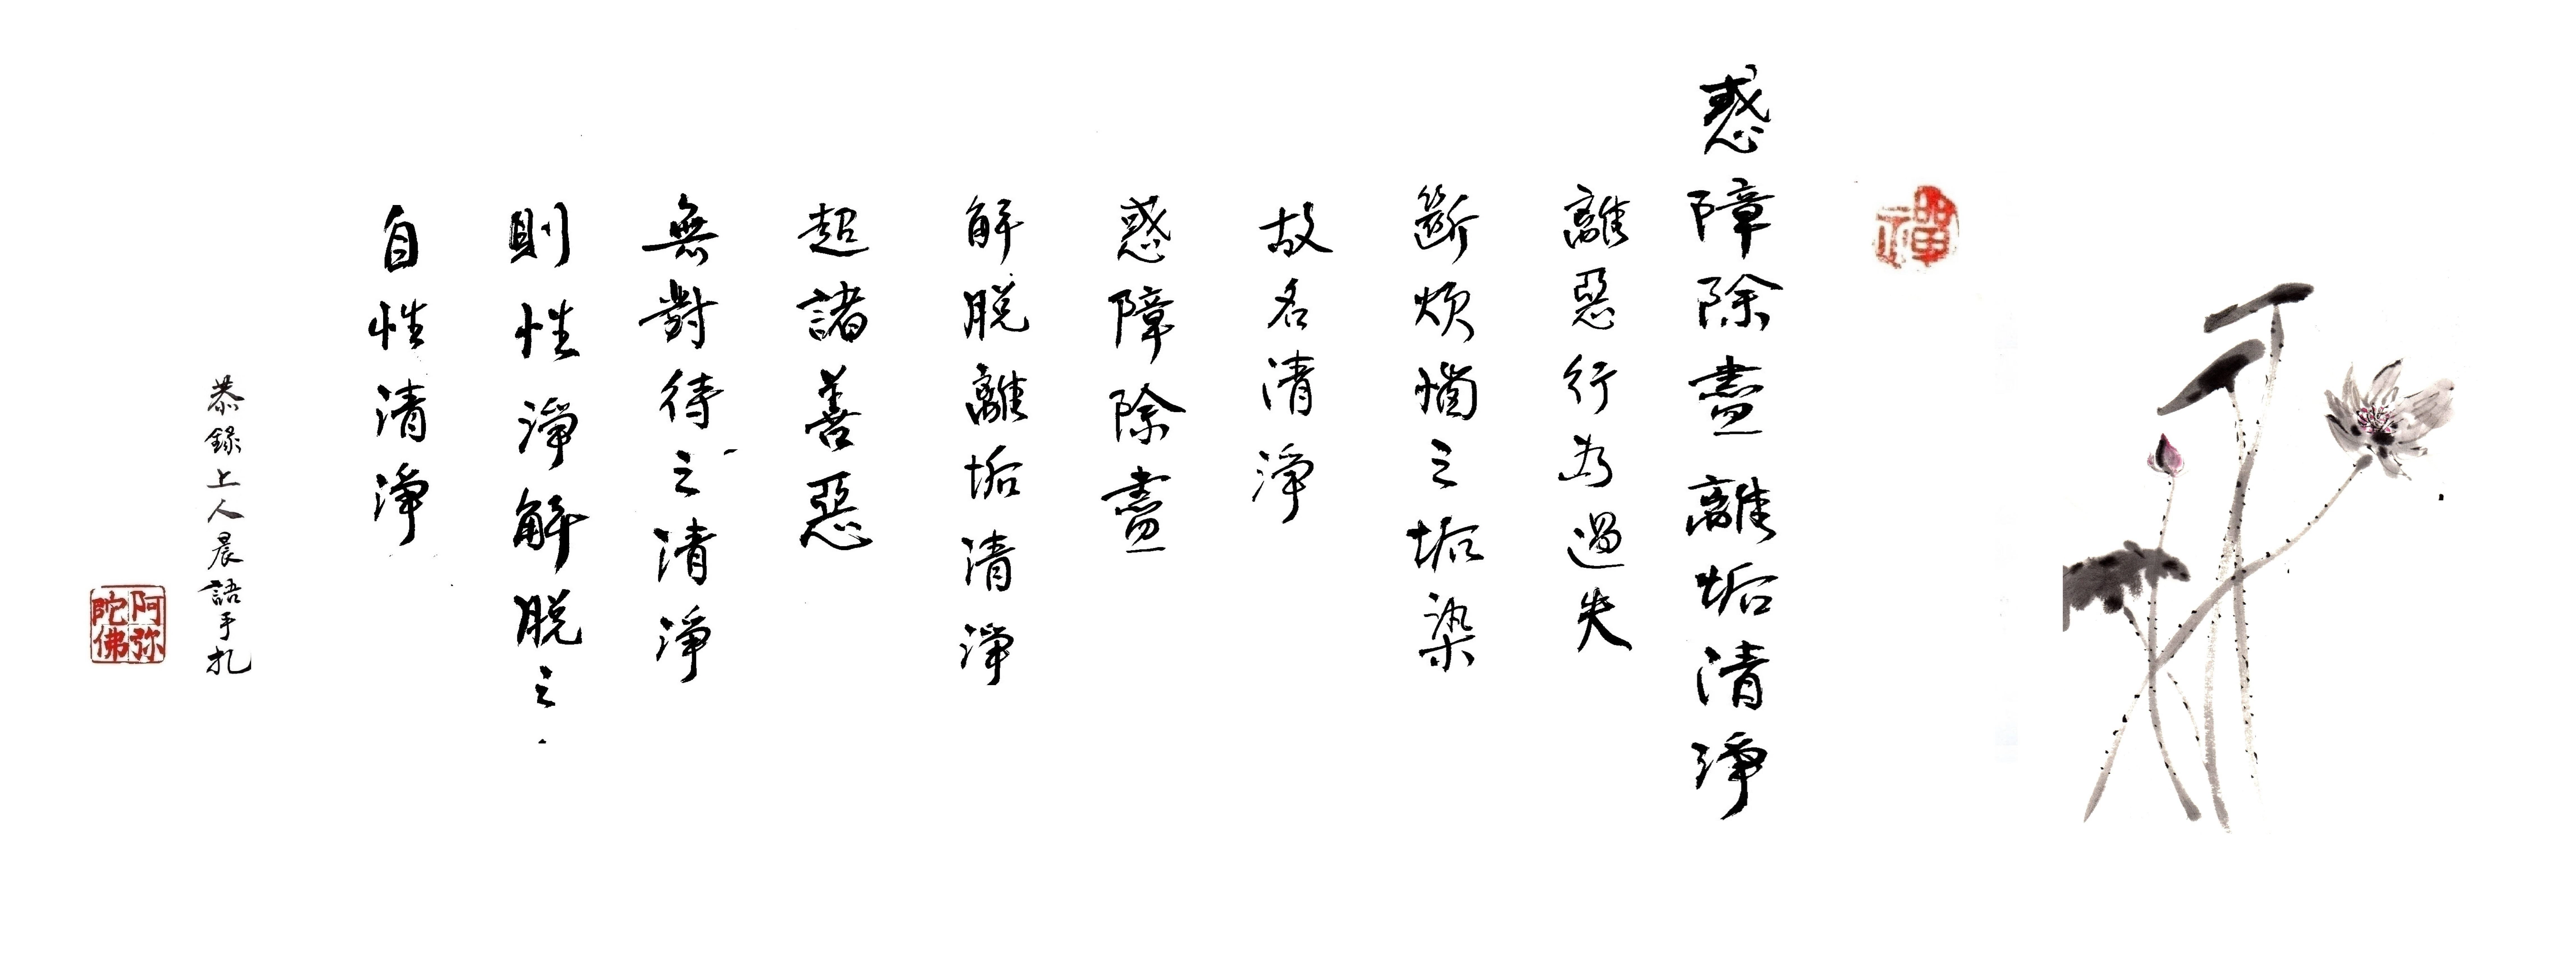 禪
惑障除盡離垢清淨
離惡行為過失
斷煩惱之垢染
故名清淨
惑障除盡
解脫離垢清淨
超諸善惡
無對待之清淨
則性淨解脫之
自性清淨
恭錄上人晨語手扎
阿弥
陀佛